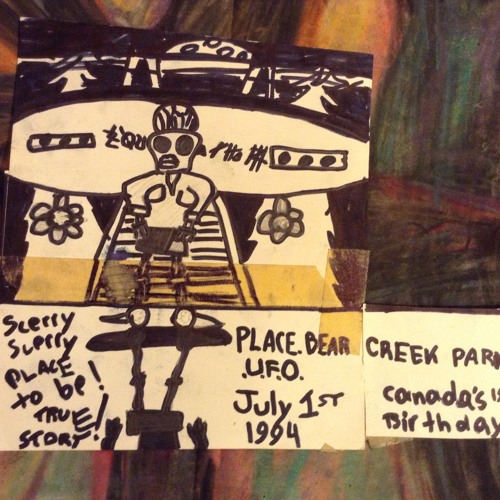 Scerry
Scerry
PLACE
to be!
TRUE
STORY!
PLACE. BEAR
U.F.O.
July 1ST
1994
CREEK PARK
Canada's
Birthday